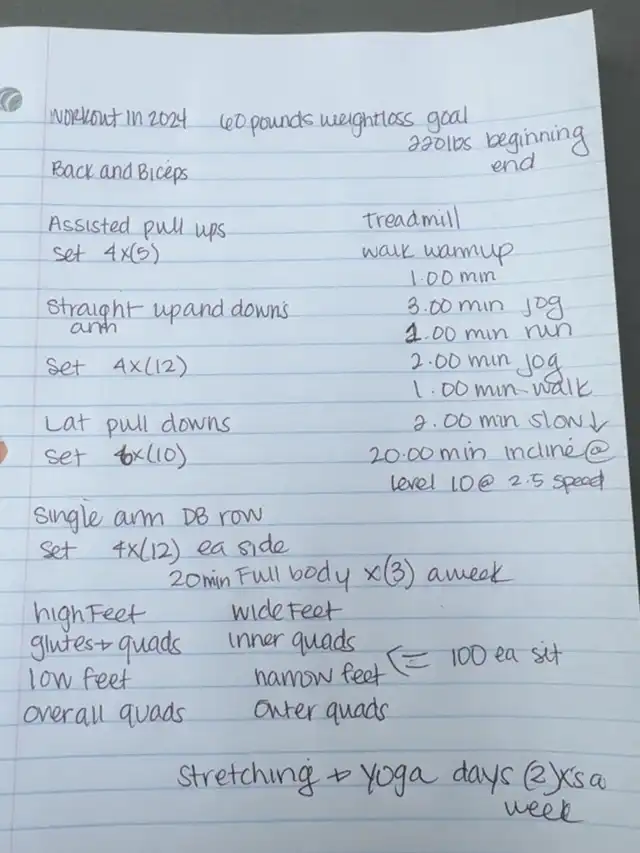 Workout in 2024 60 pounds weightloss goal
220lbs beginning
end
Back and Biceps
Assisted pull ups
set 4x(5)
Straight up and downs
arm
Set 4x(12)
Lat pull downs
Set 6x(10)
Single arm DB row
Set 4x(12) ea side
treadmill
walk warmup
1.00 min
3.00 min jog
1.00 min run
2.00 min jog
1.00 min walk
2.00 min slow ↓
20.00 min incline @
level 10 @ 2.5 speed
20min Full body x(3) a week
high Feet wide Feet
glutes + quads inner quads
low feet narrow feet <= 100 ea sit
overall quads outer quads
Stretching + Yoga days (2)x's a
week